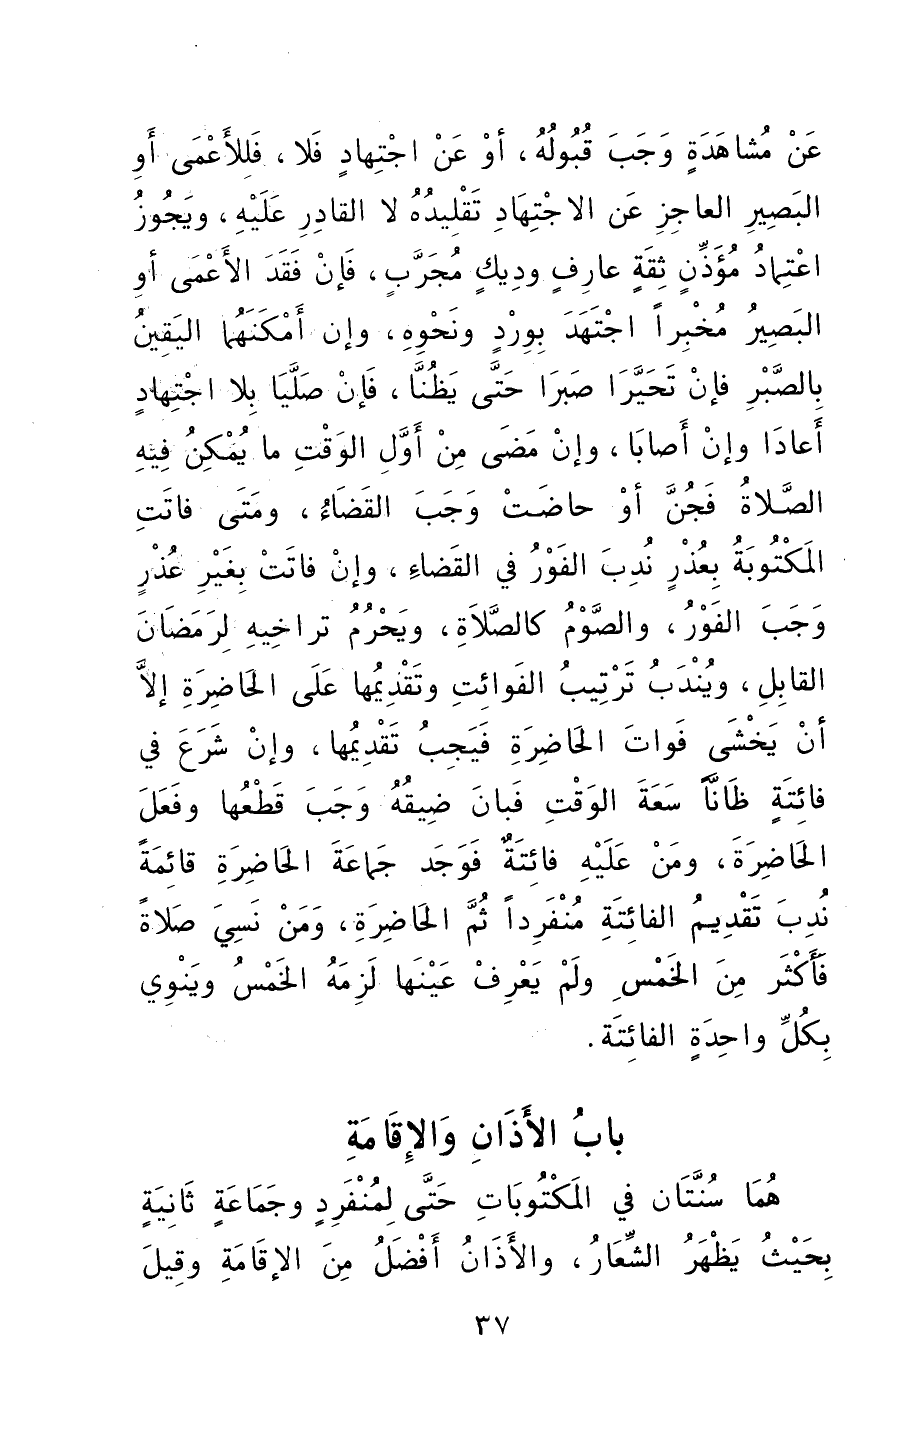 عَنْ مُشاهَدَةٍ وَجَبَ قُبُولُهُ، أوْ عَنْ اجْتِهادٍ فَلا، فَلِلأَعْمَى أَوِ
البَصِيرِ العاجِزِ عَنِ الاجْتِهَادِ تَقْلِيدُهُ لا القادِرِ عَلَيْهِ، ويَجُوزُ
اعْتِمادُ مُؤَذِّنٍ ثِقَةٍ عارِفٍ ودِيكٍ مُجَرَّبٍ، فَإنْ فَقَدَ الأَعْمَى أوِ
البَصِيرُ مُخْبِراً اجْتَهَدَ بِوِرْدٍ ونَحْوِهِ، وإن أَمْكَنَهُما اليَقِينُ
بِالصَّبْرِ فإنْ تَحَيَّرَا صَبَرَا حَتَّى يَظُنَّا، فَإنْ صَلَّيَا بِلا اجْتِهادٍ
أَعادَا وإنْ أَصابَا، وإنْ مَضَى مِنْ أَوَّلِ الوَقْتِ ما يُمْكِنُ فِيهِ
الصَّلاةُ فَجُنَّ أوْ حاضَتْ وَجَبَ القَضَاءُ، ومَتَى فاتَتِ
المَكْتُوبَةُ بِعُذْرٍ نُدِبَ الفَوْرُ في القَضاءِ، وإنْ فاتَتْ بِغَيْرِ عُذْرٍ
وَجَبَ الفَوْرُ، والصَّوْمُ كالصَّلاَةِ، ويَحْرُمُ تراخِيهِ لِرَمَضَانَ
القابِلِ، ويُنْدَبُ تَرْتِيبُ الفَوائتِ وتَقْدِيمُها عَلَى الحَاضِرَةِ إلاَّ
أنْ يَخْشَى فَواتَ الحَاضِرَةِ فَيَجِبُ تَقْدِيمُها، وإنْ شَرَعَ في
فائِتَةٍ ظَانَّاً سَعَةَ الوَقْتِ فَبانَ ضِيقُهُ وَجَبَ قَطْعُها وفَعَلَ
الحَاضِرَةَ، ومَنْ عَلَيْهِ فائِتَةٌ فَوَجَدَ جَماعَةَ الحَاضِرَةِ قائِمَةً
نُدِبَ تَقْدِيمُ الفائِتَةِ مُنْفَرِداً ثُمَّ الحَاضِرَةِ، وَمَنْ نَسِيَ صَلاةً
فَأَكْثَرَ مِنَ الخَمْسِ ولَمْ يَعْرِفْ عَيْنَها لَزِمَهُ الخَمْسُ ويَنْوِي
بِكُلِّ واحِدَةٍ الفائِتَة.
بابُ الأَذَانِ وَالإِقَامَةِ
هُمَا سُنَّتَان في المَكْتُوبَاتِ حَتَّى لِمُنْفَرِدٍ وجَمَاعَةٍ ثَانِيَةٍ
بِحَيْثُ يَظْهَرُ الشِّعَارُ، والأَذَانُ أَفْضَلُ مِنَ الإقَامَةِ وقِيلَ
٣٧